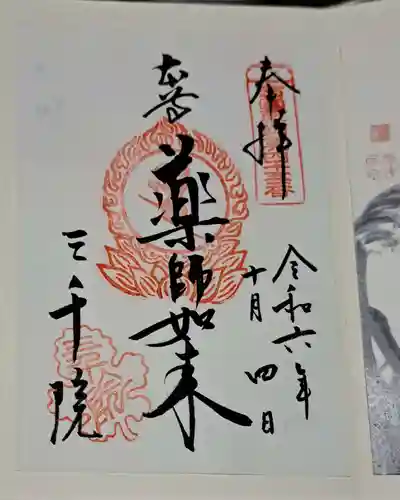 奉拝
令和六年
十月四日
本尊
薬師如来
三千院